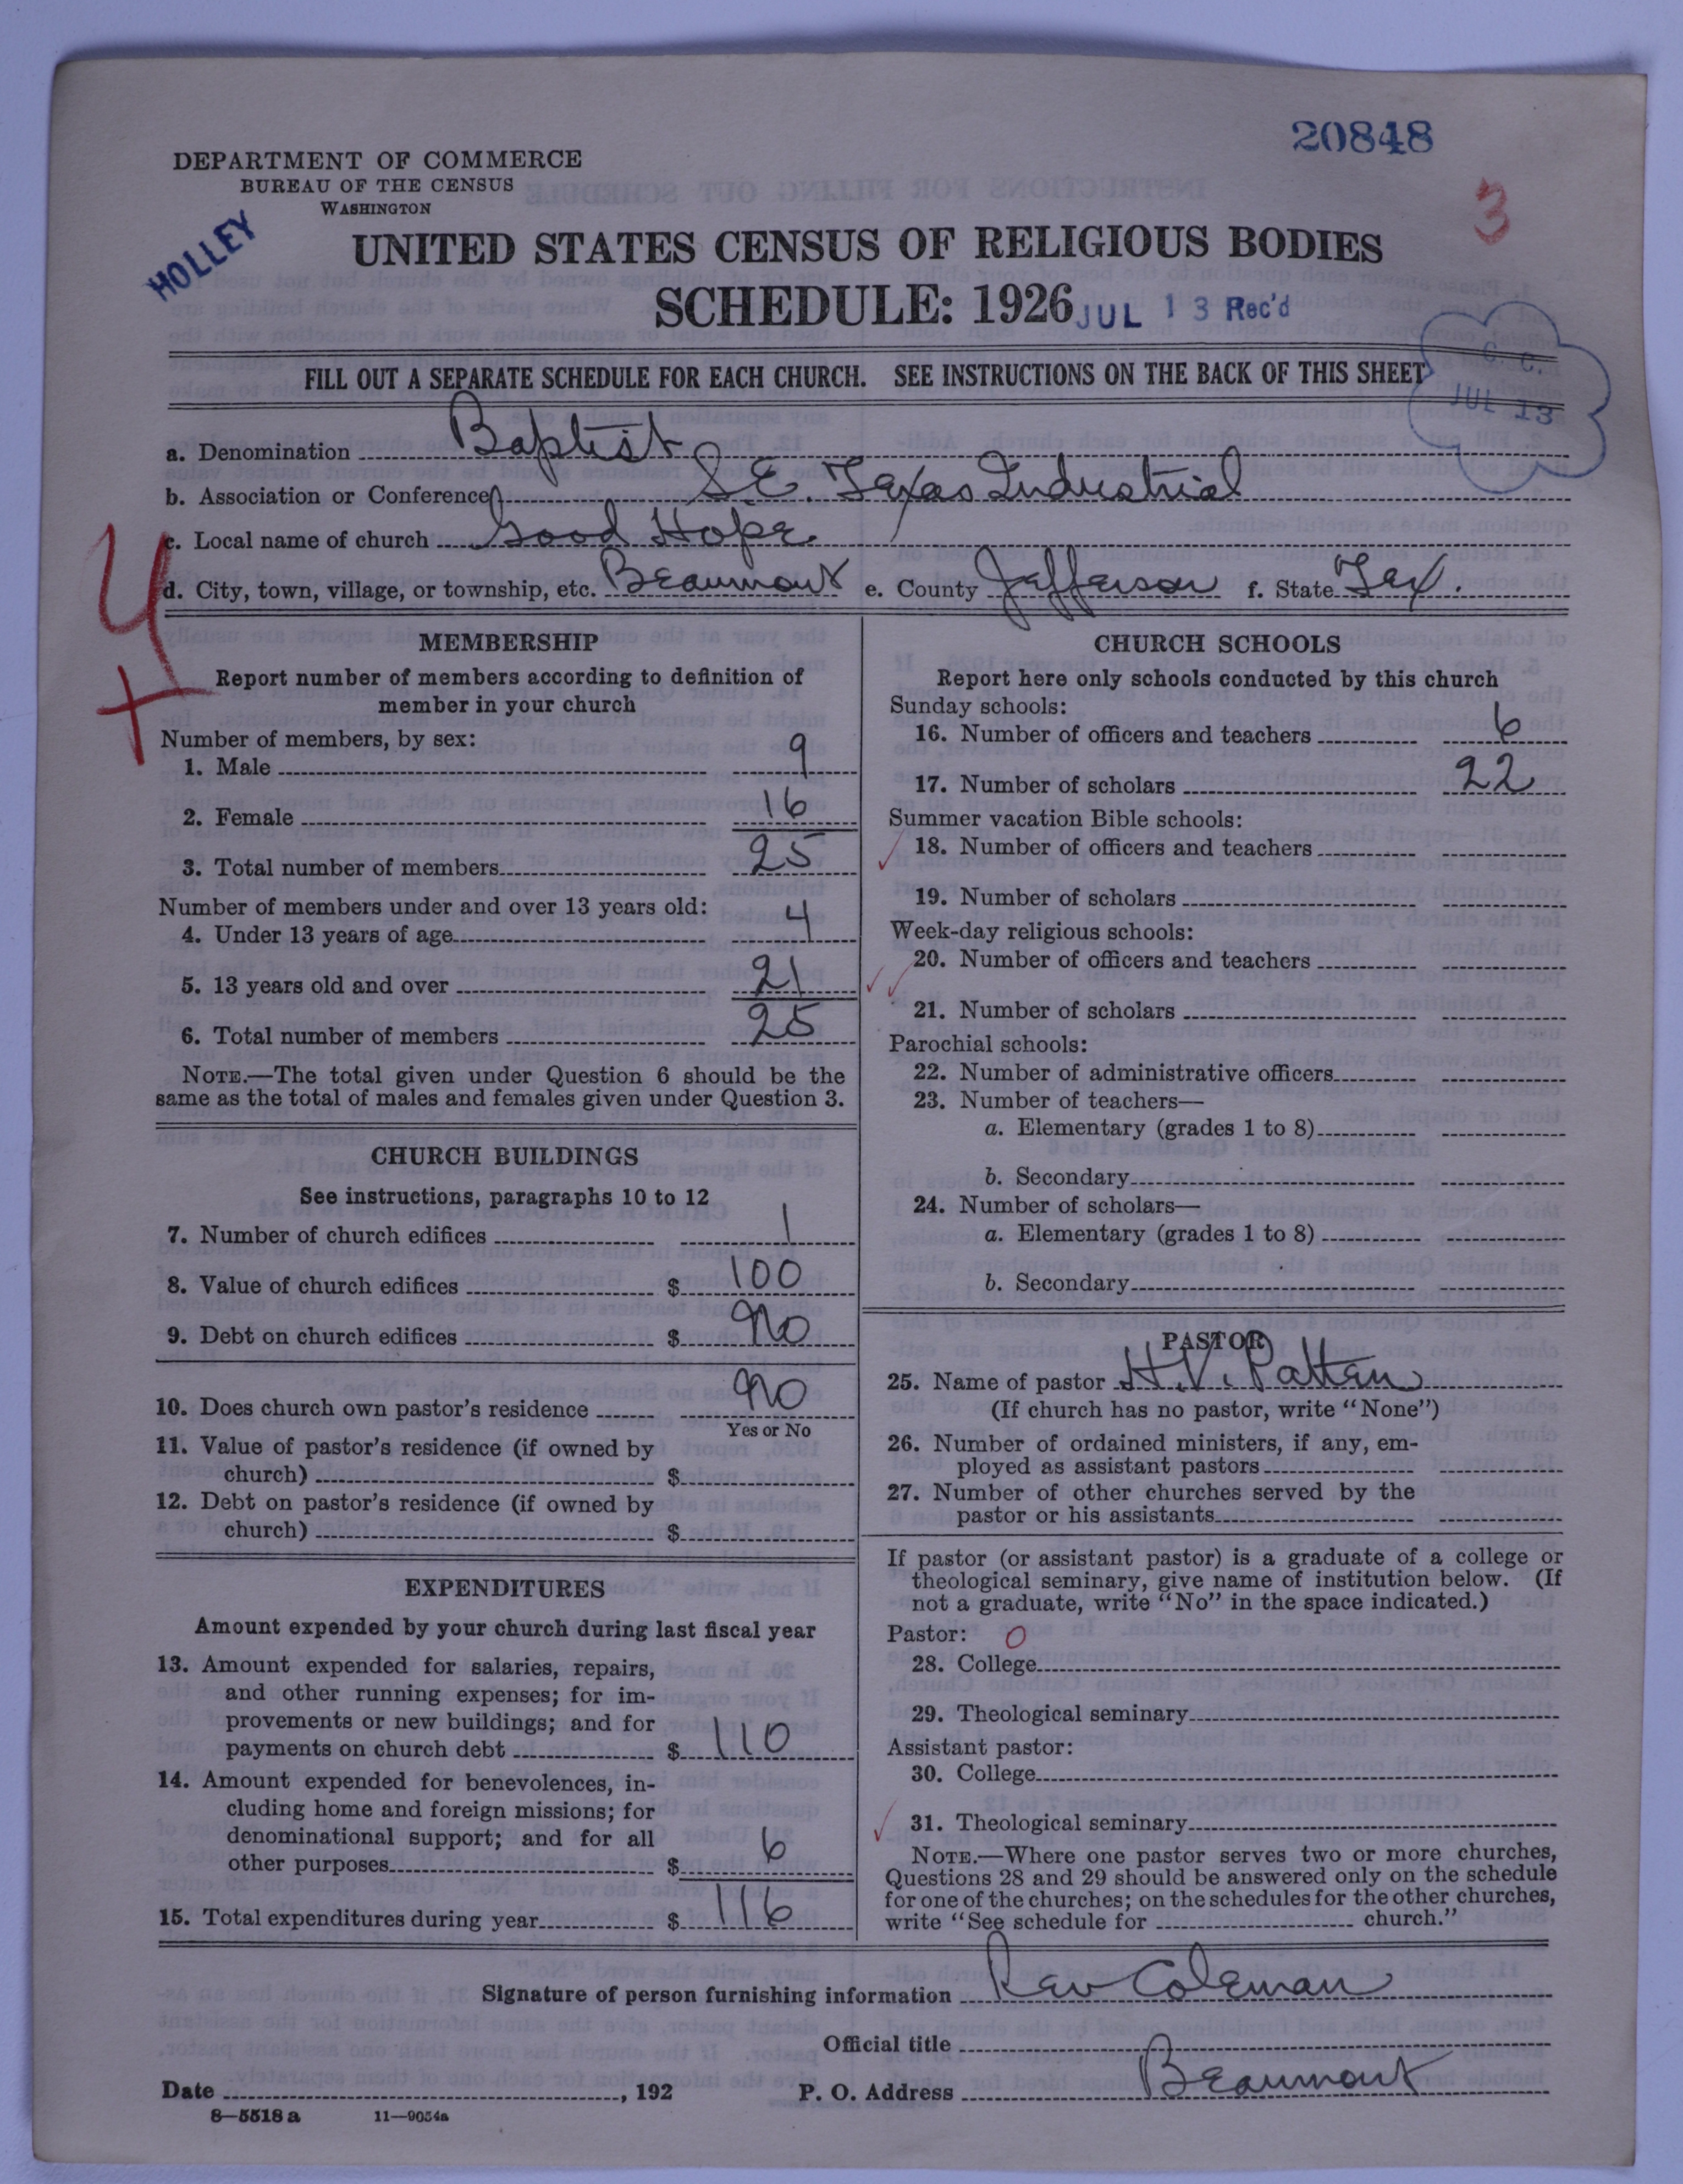 20848
DEPARTMENT OF COMMERCE
BUREAU OF THE CENSUS
WASHINGTON
3
HOLLEY
UNITED STATES CENSUS OF RELIGIOUS BODIES
SCHEDULE: 1926
JUL 13 Rec'd
FILL OUT A SEPARATE SCHEDULE FOR EACH CHURCH. SEE INSTRUCTIONS ON THE BACK OF THIS SHEET
C. C.
JUL 13
a. Denomination Baptist
b. Association or Conference S.E. Texas Industrial
c. Local name of church Good Hope
d. City, town, village, or township, etc. Beaumont e. County Jefferson f. State Tex.
MEMBERSHIP
Report number of members according to definition of
member in your church
Number of members, by sex:
1. Male 9
2. Female 16
3. Total number of members 25
Number of members under and over 13 years old:
4. Under 13 years of age 4
5. 13 years old and over 21
6. Total number of members 25
NOTE.—The total given under Question 6 should be the
same as the total of males and females given under Question 3.
CHURCH BUILDINGS
See instructions, paragraphs 10 to 12
7. Number of church edifices 1
8. Value of church edifices $ 100
9. Debt on church edifices $ No
10. Does church own pastor's residence No
Yes or No
11. Value of pastor's residence (if owned by
church) $
12. Debt on pastor's residence (if owned by
church) $
EXPENDITURES
Amount expended by your church during last fiscal year
13. Amount expended for salaries, repairs,
and other running expenses; for im-
provements or new buildings; and for
payments on church debt $ 110
14. Amount expended for benevolences, in-
cluding home and foreign missions; for
denominational support; and for all
other purposes $ 6
15. Total expenditures during year $ 116
CHURCH SCHOOLS
Report here only schools conducted by this church
Sunday schools:
16. Number of officers and teachers 6
17. Number of scholars 22
Summer vacation Bible schools:
18. Number of officers and teachers
19. Number of scholars
Week-day religious schools:
20. Number of officers and teachers
21. Number of scholars
Parochial schools:
22. Number of administrative officers
23. Number of teachers—
a. Elementary (grades 1 to 8)
b. Secondary
24. Number of scholars—
a. Elementary (grades 1 to 8)
b. Secondary
PASTOR
25. Name of pastor H. V. Patten
(If church has no pastor, write "None")
26. Number of ordained ministers, if any, em-
ployed as assistant pastors
27. Number of other churches served by the
pastor or his assistants
If pastor (or assistant pastor) is a graduate of a college or
theological seminary, give name of institution below. (If
not a graduate, write "No" in the space indicated.)
Pastor: 0
28. College
29. Theological seminary
Assistant pastor:
30. College
31. Theological seminary
NOTE.—Where one pastor serves two or more churches,
Questions 28 and 29 should be answered only on the schedule
for one of the churches; on the schedules for the other churches,
write "See schedule for church."
Signature of person furnishing information Rev Coleman
Official title
Date , 192 P. O. Address Beaumont
8—5518 a 11—9054a